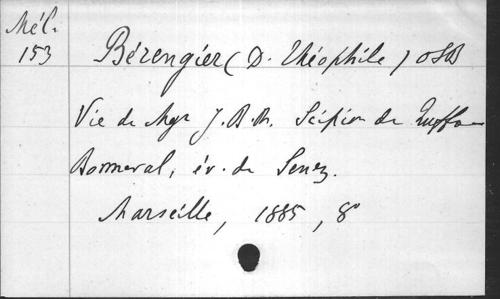 Mél.
153
Bérengier (D. Théophile) OSB
Vie de Mgr J. B. M. Scipion de Ruffo
Bonneval, év. de Senez.
Marseille, 1885, 8°